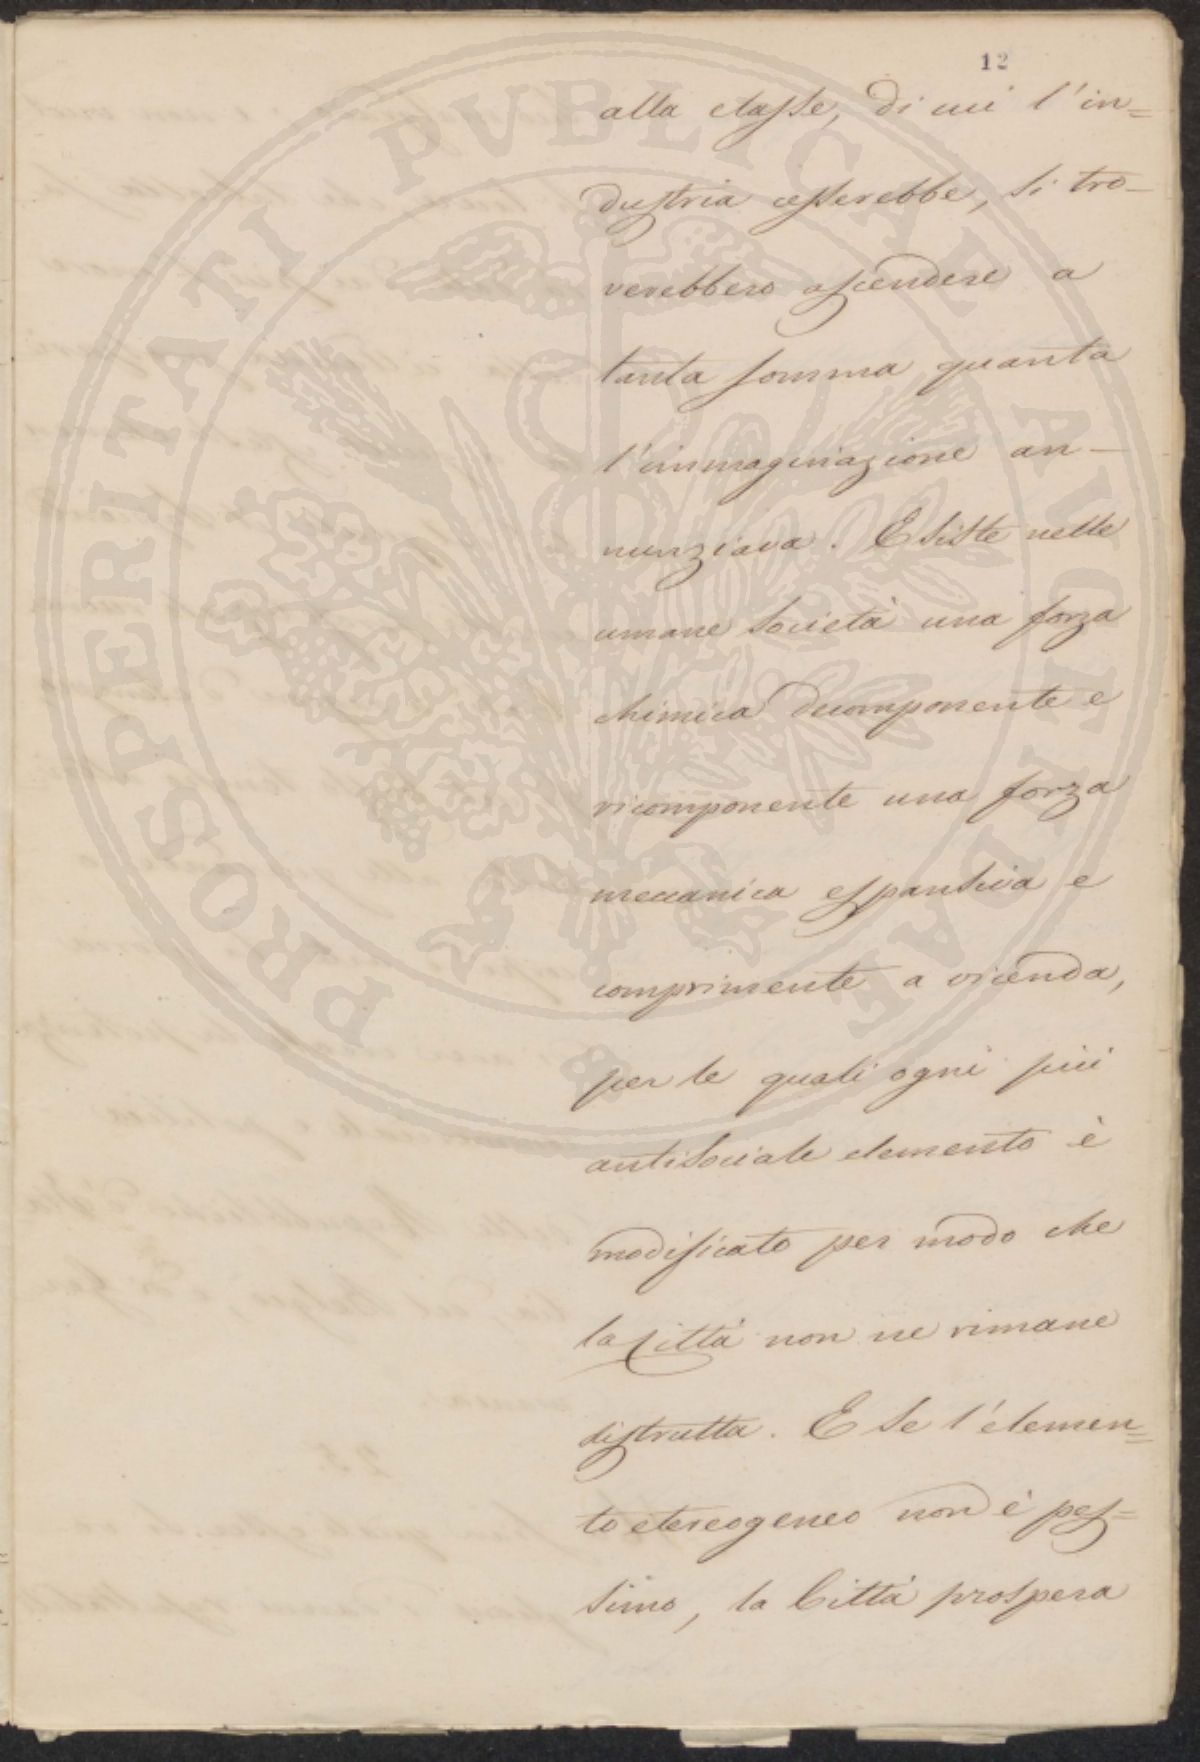 12
alla classe, di cui l'in=
dustria cesserebbe, si tro-
verebbero ascendere a
tanta somma quanta
l'immaginazione an-
nunziava. Esiste nelle
umane società una forza
chimica decomponente e
ricomponente una forza
meccanica espansiva e
comprimente a vicenda,
per le quali ogni più
antisociale elemento è
modificato per modo che
la Città non ne rimane
distrutta. E se l'elemen=
to etereogeneo non è pes=
simo, la Città prospera
PROSPERITATI PVBLICAE AVGENDAE